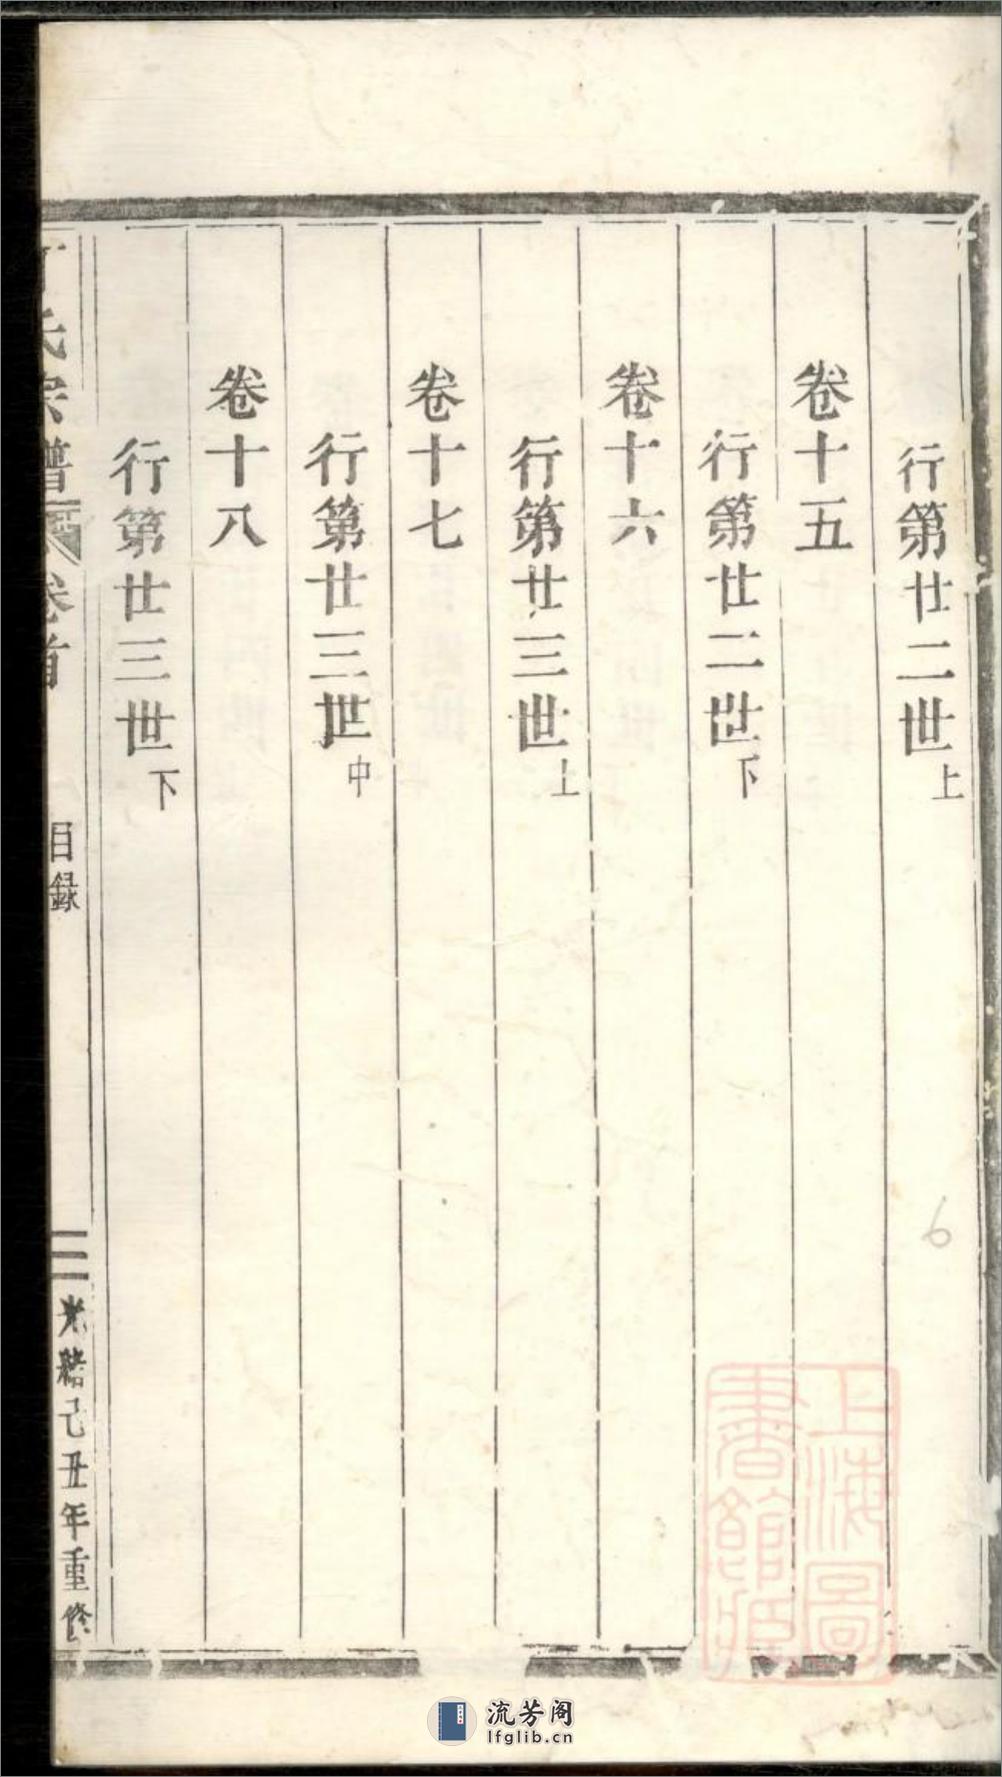 行第廿二世上
卷十五
行第廿二世下
卷十六
行第廿三世上
卷十七
行第廿三世中
卷十八
行第廿三世下
丁氏宗譜 卷首 目録 三 光緒己丑年重修
上海圖書館藏
6
流芳阁
lfglib.cn